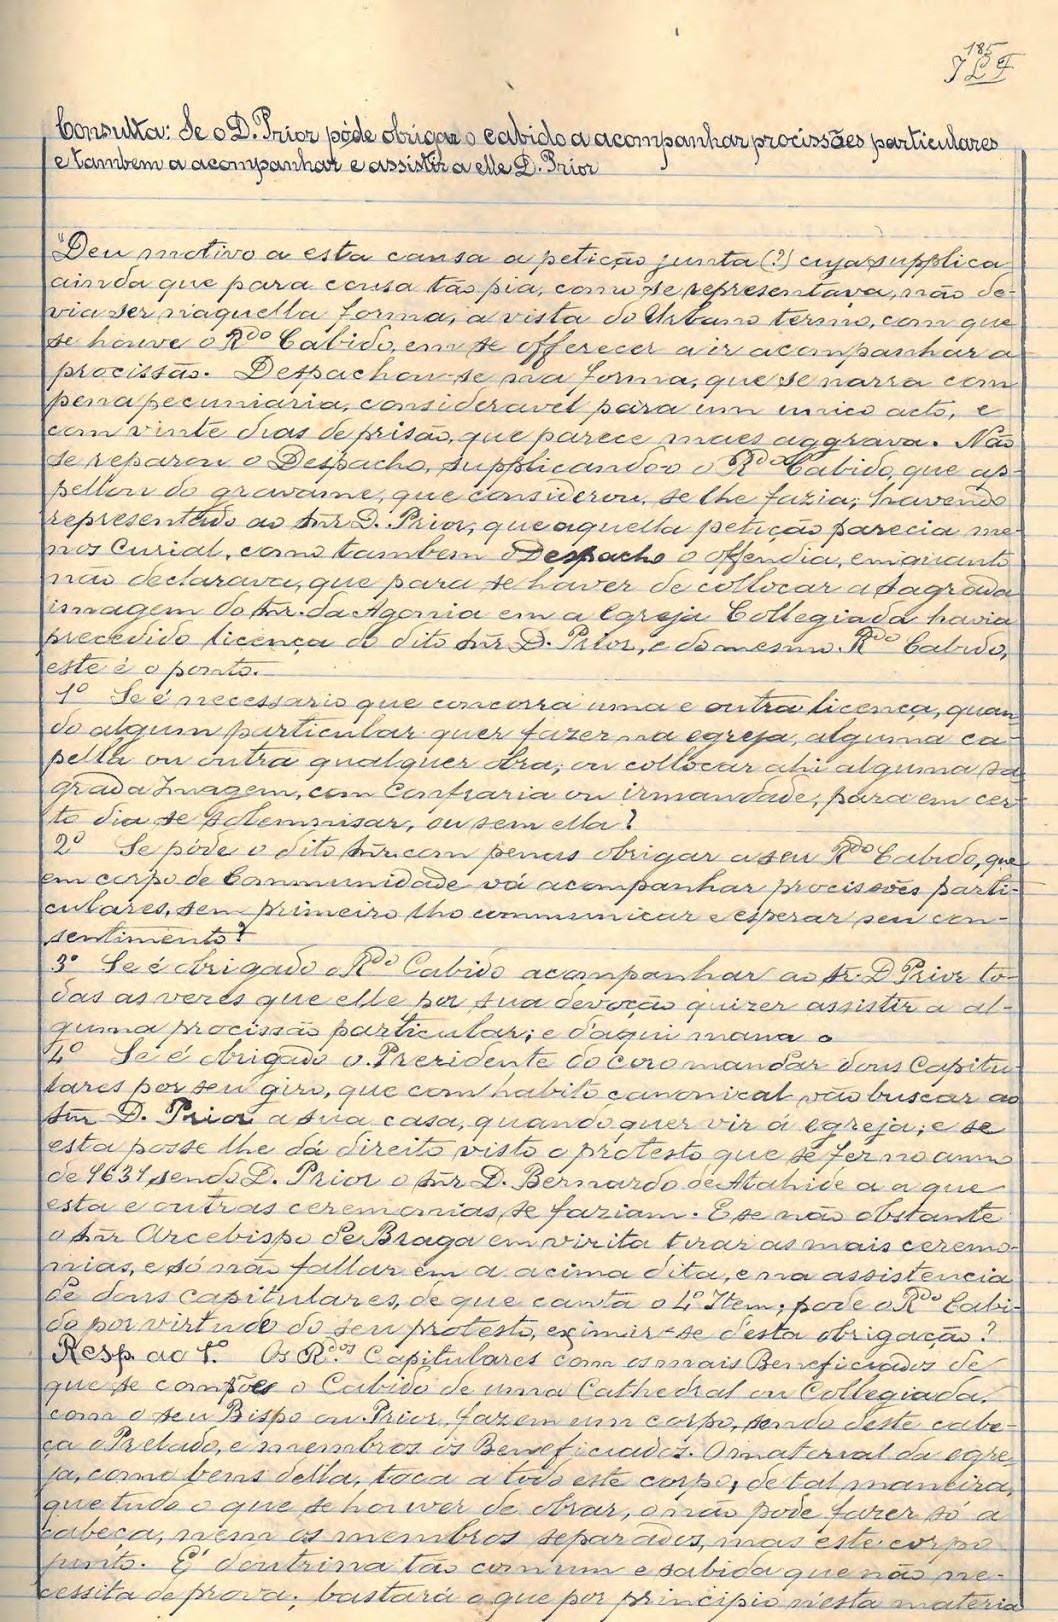 185
Consulta: Se o D. Prior póde obrigar o cabido a acompanhar procissões particulares
e tambem a acompanhar e assistir a elle D. Prior
"Deu motivo a esta causa a petição junta (?) cuja supplica
ainda que para cousa tão pia, como se representava, não de-
via ser n'aquella forma, a vista do Urbano termo, com que
se houve o Rdo Cabido, em se offerecer a ir acompanhar a
procissão. Despachou-se na forma, que se narra com
pena pecuniaria, consideravel para um unico acto, e
com vinte dias de prisão, que parece mais aggrava. Não
se reparou o Despacho, supplicando-o o Rdo Cabido, que ap-
pellou do gravame, que considerou, se lhe fazia; havendo
representado ao Snr D. Prior, que aquella petição parecia me-
nos Curial, como tambem o Despacho o offendia, emquanto
não declarava, que para se haver de collocar a Sagrada
imagem do Snr. da Agonia em a Egreja Collegiada havia
precedido licença do dito Snr D. Prior, e do mesmo Rdo Cabido,
este é o ponto.
1º Se é necessario que concorra uma e outra licença, quan-
do algum particular quer fazer na egreja, alguma ca-
pella ou outra qualquer obra; ou collocar ahi alguma sa-
grada Imagem, com Confraria ou irmandade, para em cer-
to dia se solemnisar, ou sem ella?
2º Se póde o dito Snr. com penas obrigar a seu Rdo Cabido, que
em corpo de Communidade vá acompanhar procissões parti-
culares, sem primeiro lho communicar e esperar seu con-
sentimento?
3º Se é obrigado o Rdo Cabido acompanhar ao Sr. D Prior to-
das as veses que elle por sua devoção quizer assistir a al-
guma procissão particular; e d'aqui mana o
4º Se é obrigado o Prezidente do coro mandar dous Capitu-
lares por seu giro, que com habito canonical vão buscar ao
Snr D. Prior a sua casa, quando quer vir á egreja; e se
esta posse lhe dá direito visto o protesto que se fez no anno
de 1631, sendo D. Prior o Snr D. Bernardo de Atahide a a que
esta e outras ceremonias, se faziam. E se não obstante
o Snr Arcebispo de Braga em vizita tirar as mais ceremo-
nias, e só não fallar em a acima dita, e na assistencia
de dous capitulares, de que canta o 4º Item; pode o Rdo Cabi-
do por virtude do seu protesto, eximir-se d'esta obrigação?
Resp. ao 1º. Os Rdos Capitulares com os mais Beneficiados de
que se compões o Cabido de uma Cathedral ou Collegiada,
com o seu Bispo ou Prior, fazem um corpo, sendo deste cabe-
ça o Prelado, e membros os Beneficiados. O material da egre-
ja, como bens della, toca a todo este corpo; de tal maneira,
que tudo o que se houver de obrar, o não pode fazer só a
cabeça, nem os membros separados, mas este corpo
junto. E' doutrina tão commum e sabida que não ne-
cessita de prova; bastará o que por principio nesta materia